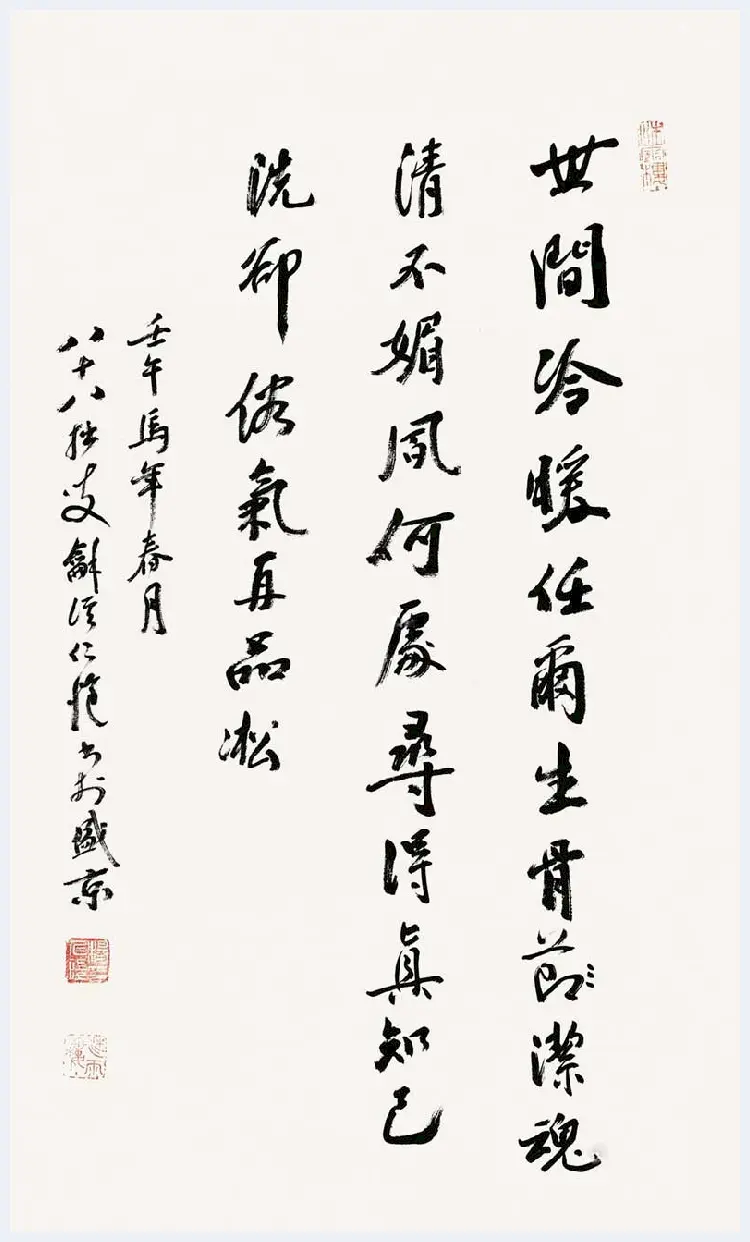 沐雨樓
世間冷暖任爾生骨節潔魂
清不媚風何處尋得真知己
洗卻俗氣再品凇
壬午馬年春月
八十八拙叟龢溪仁愷書於盛京